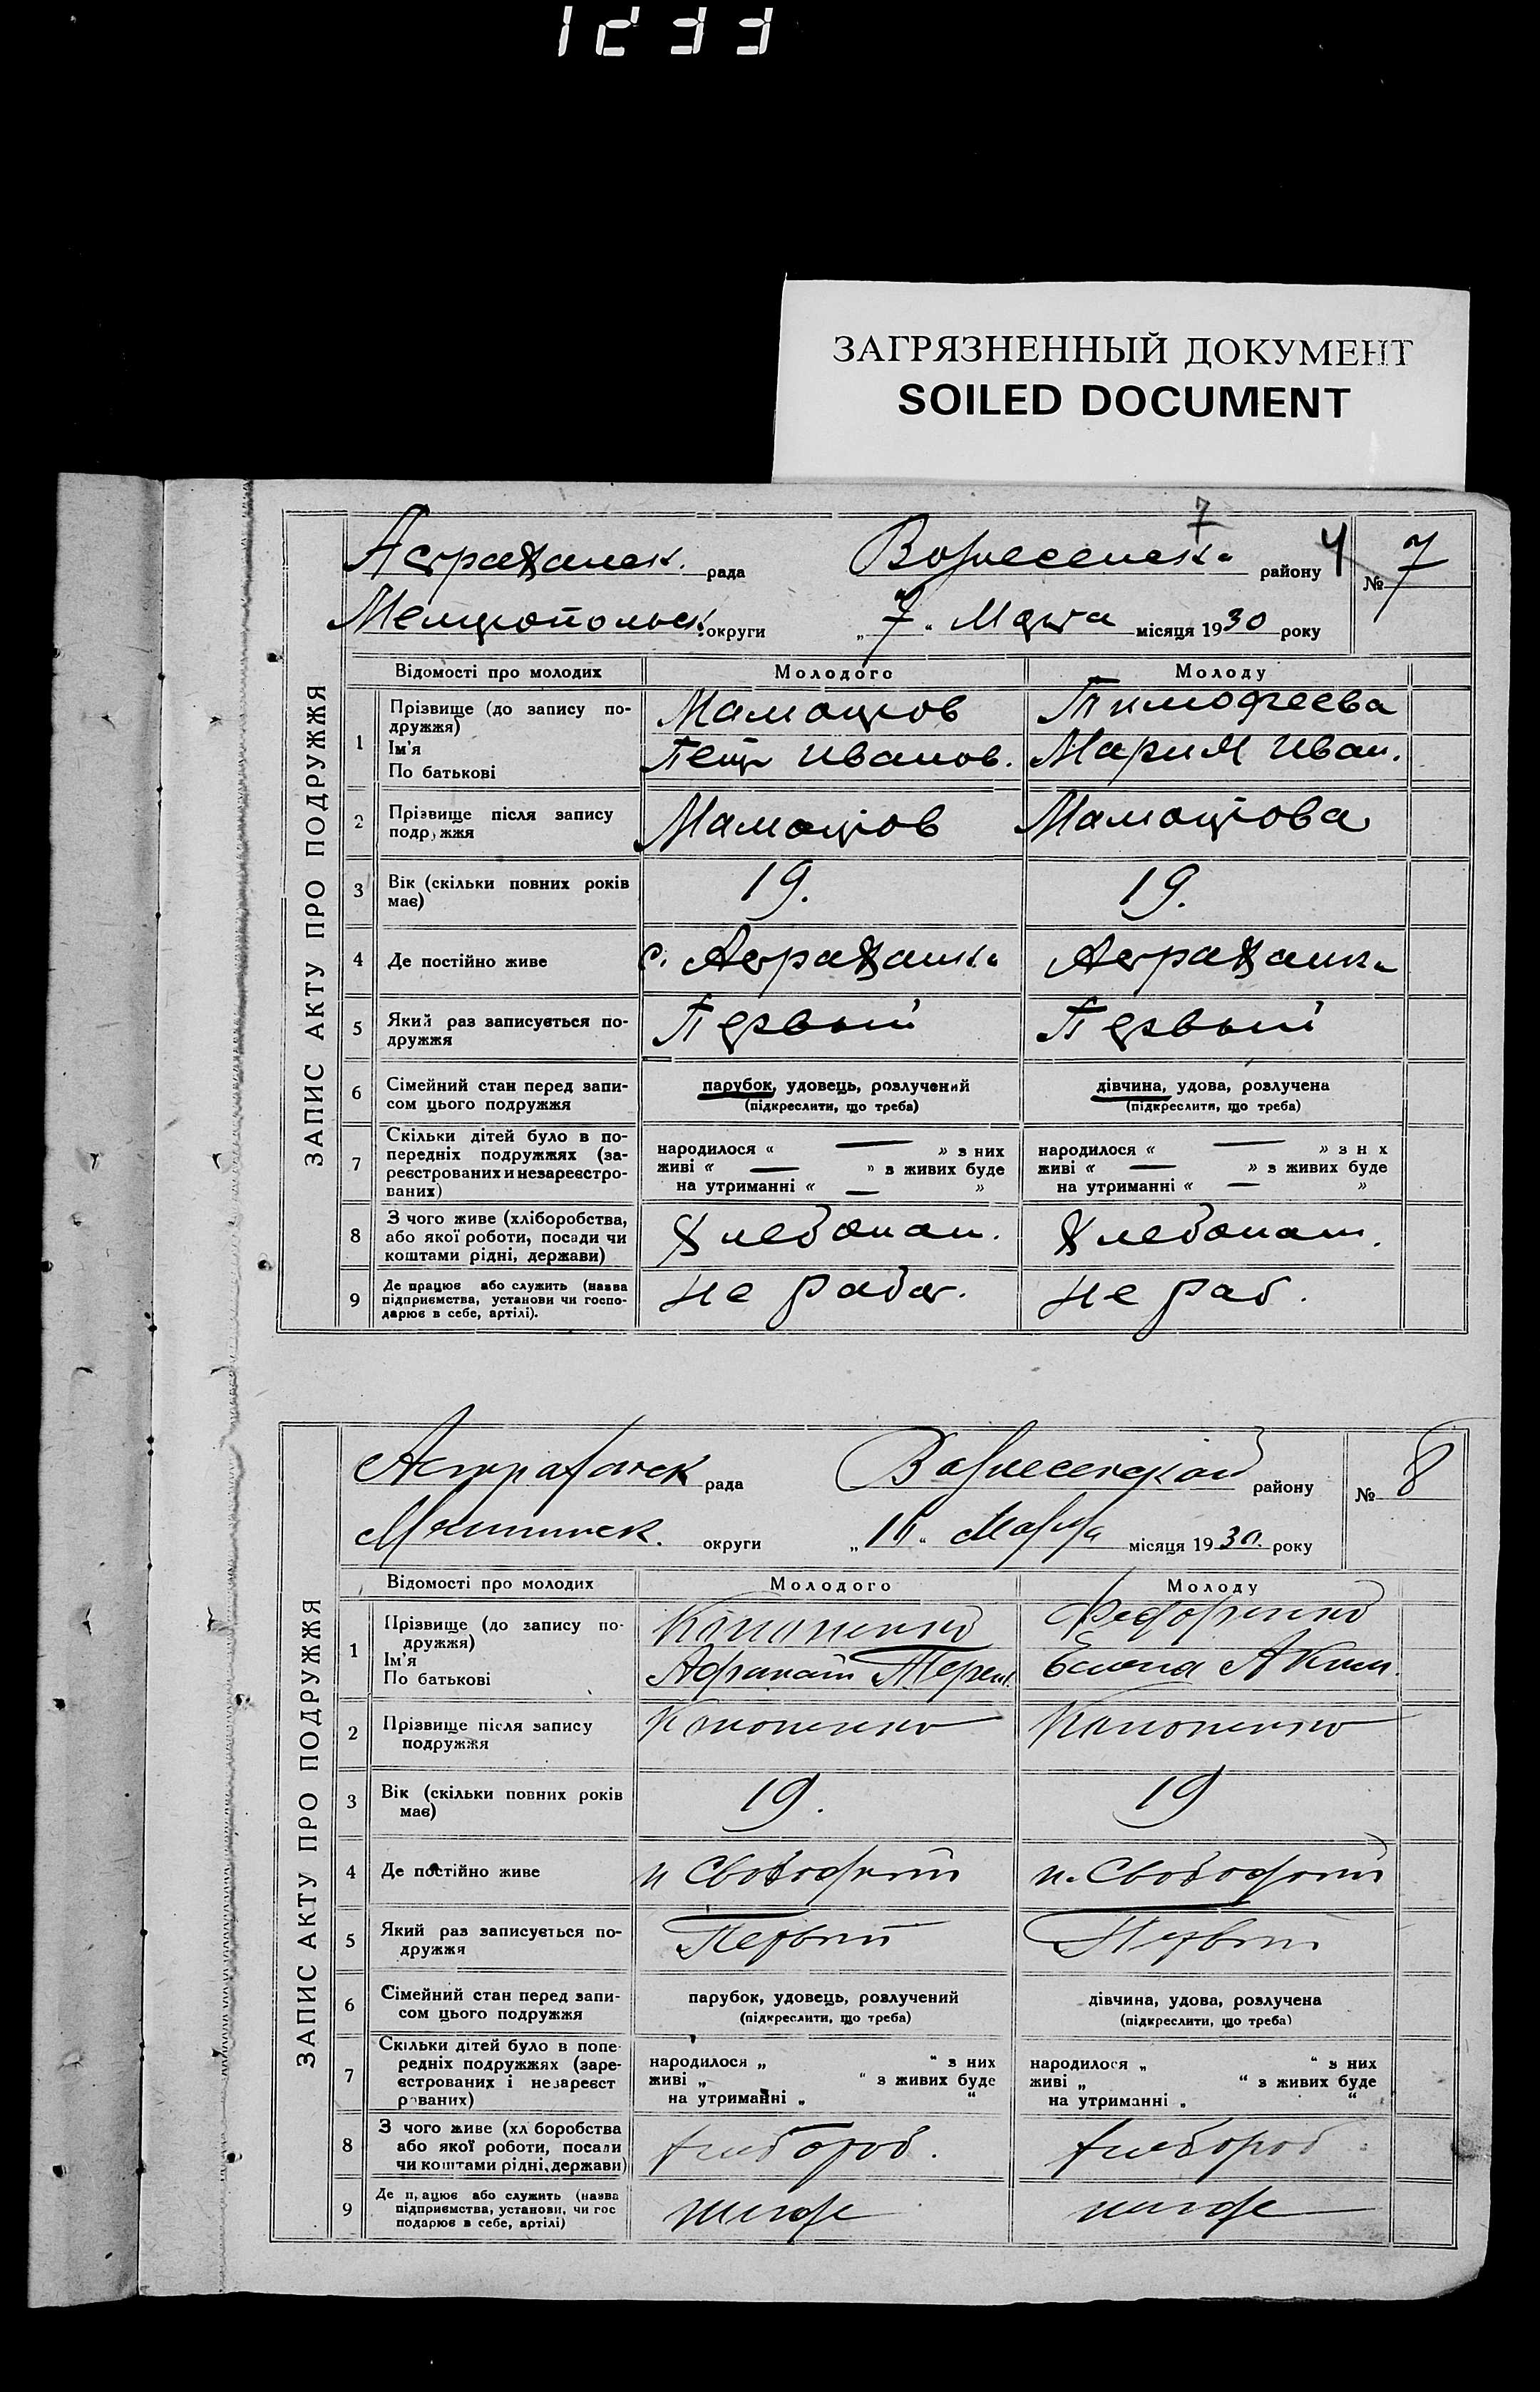 1233
ЗАГРЯЗНЕННЫЙ ДОКУМЕНТ
SOILED DOCUMENT
ЗАПИС АКТУ ПРО ПОДРУЖЖЯ
7
Астраханск. рада Вознесенск. району 4 № 7
Мелитопольск. округи „7“ Марта місяця 1930 року
Відомості про молодих Молодого Молоду
1 Прізвище (до запису по-
дружжя)
Ім'я
По батькові
Мамонтов Тимофеева
Петр Иванов. Мария Иван.
2 Прізвище після запису
подружжя
Мамонтов Мамонтова
3 Вік (скільки повних років
має)
19. 19.
4 Де постійно живе с. Астраханка Астраханка
5 Який раз записується по-
дружжя
Первый Первый
6 Сімейний стан перед запи-
сом цього подружжя
парубок, удовець, розлучений
(підкреслити, що треба)
дівчина, удова, розлучена
(підкреслити, що треба)
7 Скільки дітей було в по-
передніх подружжях (за-
реєстрованих и незареєстро-
ваних)
народилося « — » з них
живі « — » з живих буде
на утриманні « — »
народилося « — » з н х
живі « — » з живих буде
на утриманні « — »
8 З чого живе (хліборобства,
або якої роботи, посади чи
коштами рідні, держави)
Хлебопаш. Хлебопаш.
9 Де працює або служить (назва
підприємства, установи чи госпо-
дарює в себе, артілі).
не работ. не раб.
ЗАПИС АКТУ ПРО ПОДРУЖЖЯ
Астраханск рада Вознесенской району № 8
округи „11“ Марта місяця 1930. року
Відомості про молодих Молодого Молоду
1 Прізвище (до запису по-
дружжя)
Ім'я
По батькові
Федоренко
Терент. Елена Аким.
2 Прізвище після запису
подружжя
3 Вік (скільки повних років
має)
19. 19
4 Де постійно живе п Свободный п. Свободный
5 Який раз записується по-
дружжя
Первый Первый
6 Сімейний стан перед запи-
сом цього подружжя
парубок, удовець, розлучений
(підкреслити, що треба)
дівчина, удова, розлучена
(підкреслити, що треба)
7 Скільки дітей було в попе-
редніх подружжях (заре-
єстрованих і незареєст
рованих)
народилося „ “ з них
живі „ “ з живих буде
на утриманні „ “
народилося „ “ з них
живі „ “ з живих буде
на утриманні „ “
8 З чого живе (хл боробства
або якої роботи, посади
чи коштами рідні, держави)
хлебороб. хлебороб.
9 Де п, ацює або служить (назва
підприємства, установи, чи гос
подарює в себе, артілі)
нигде нигде